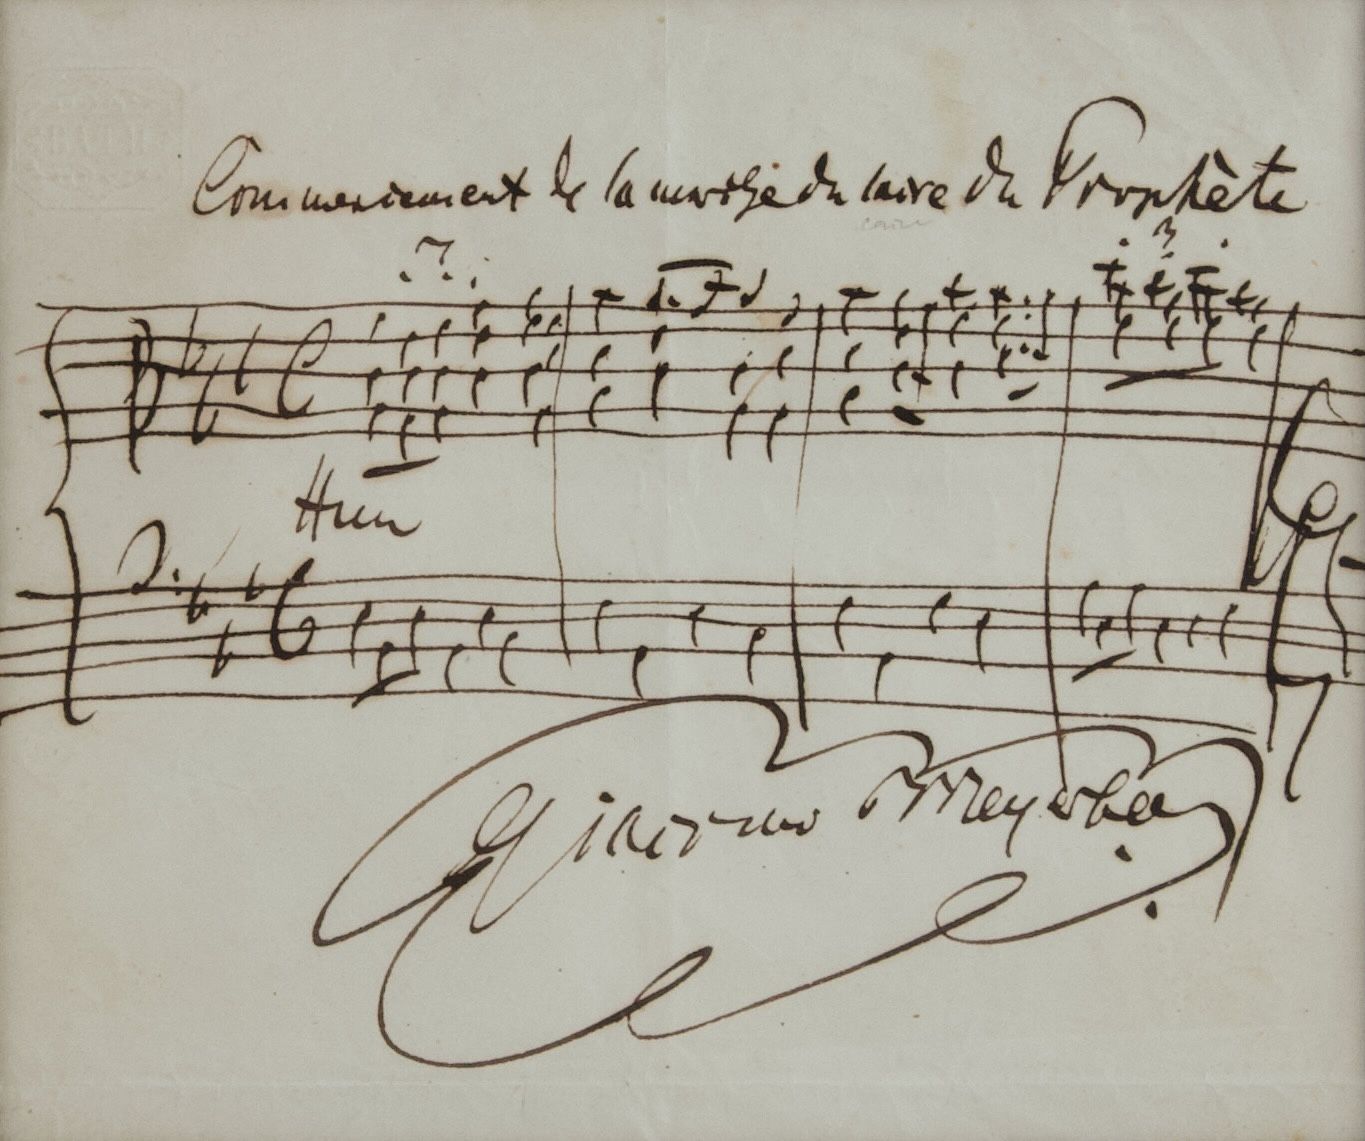 Commencement de la marche du sacre du Prophète
3
3
Giacomo Meyerbeer